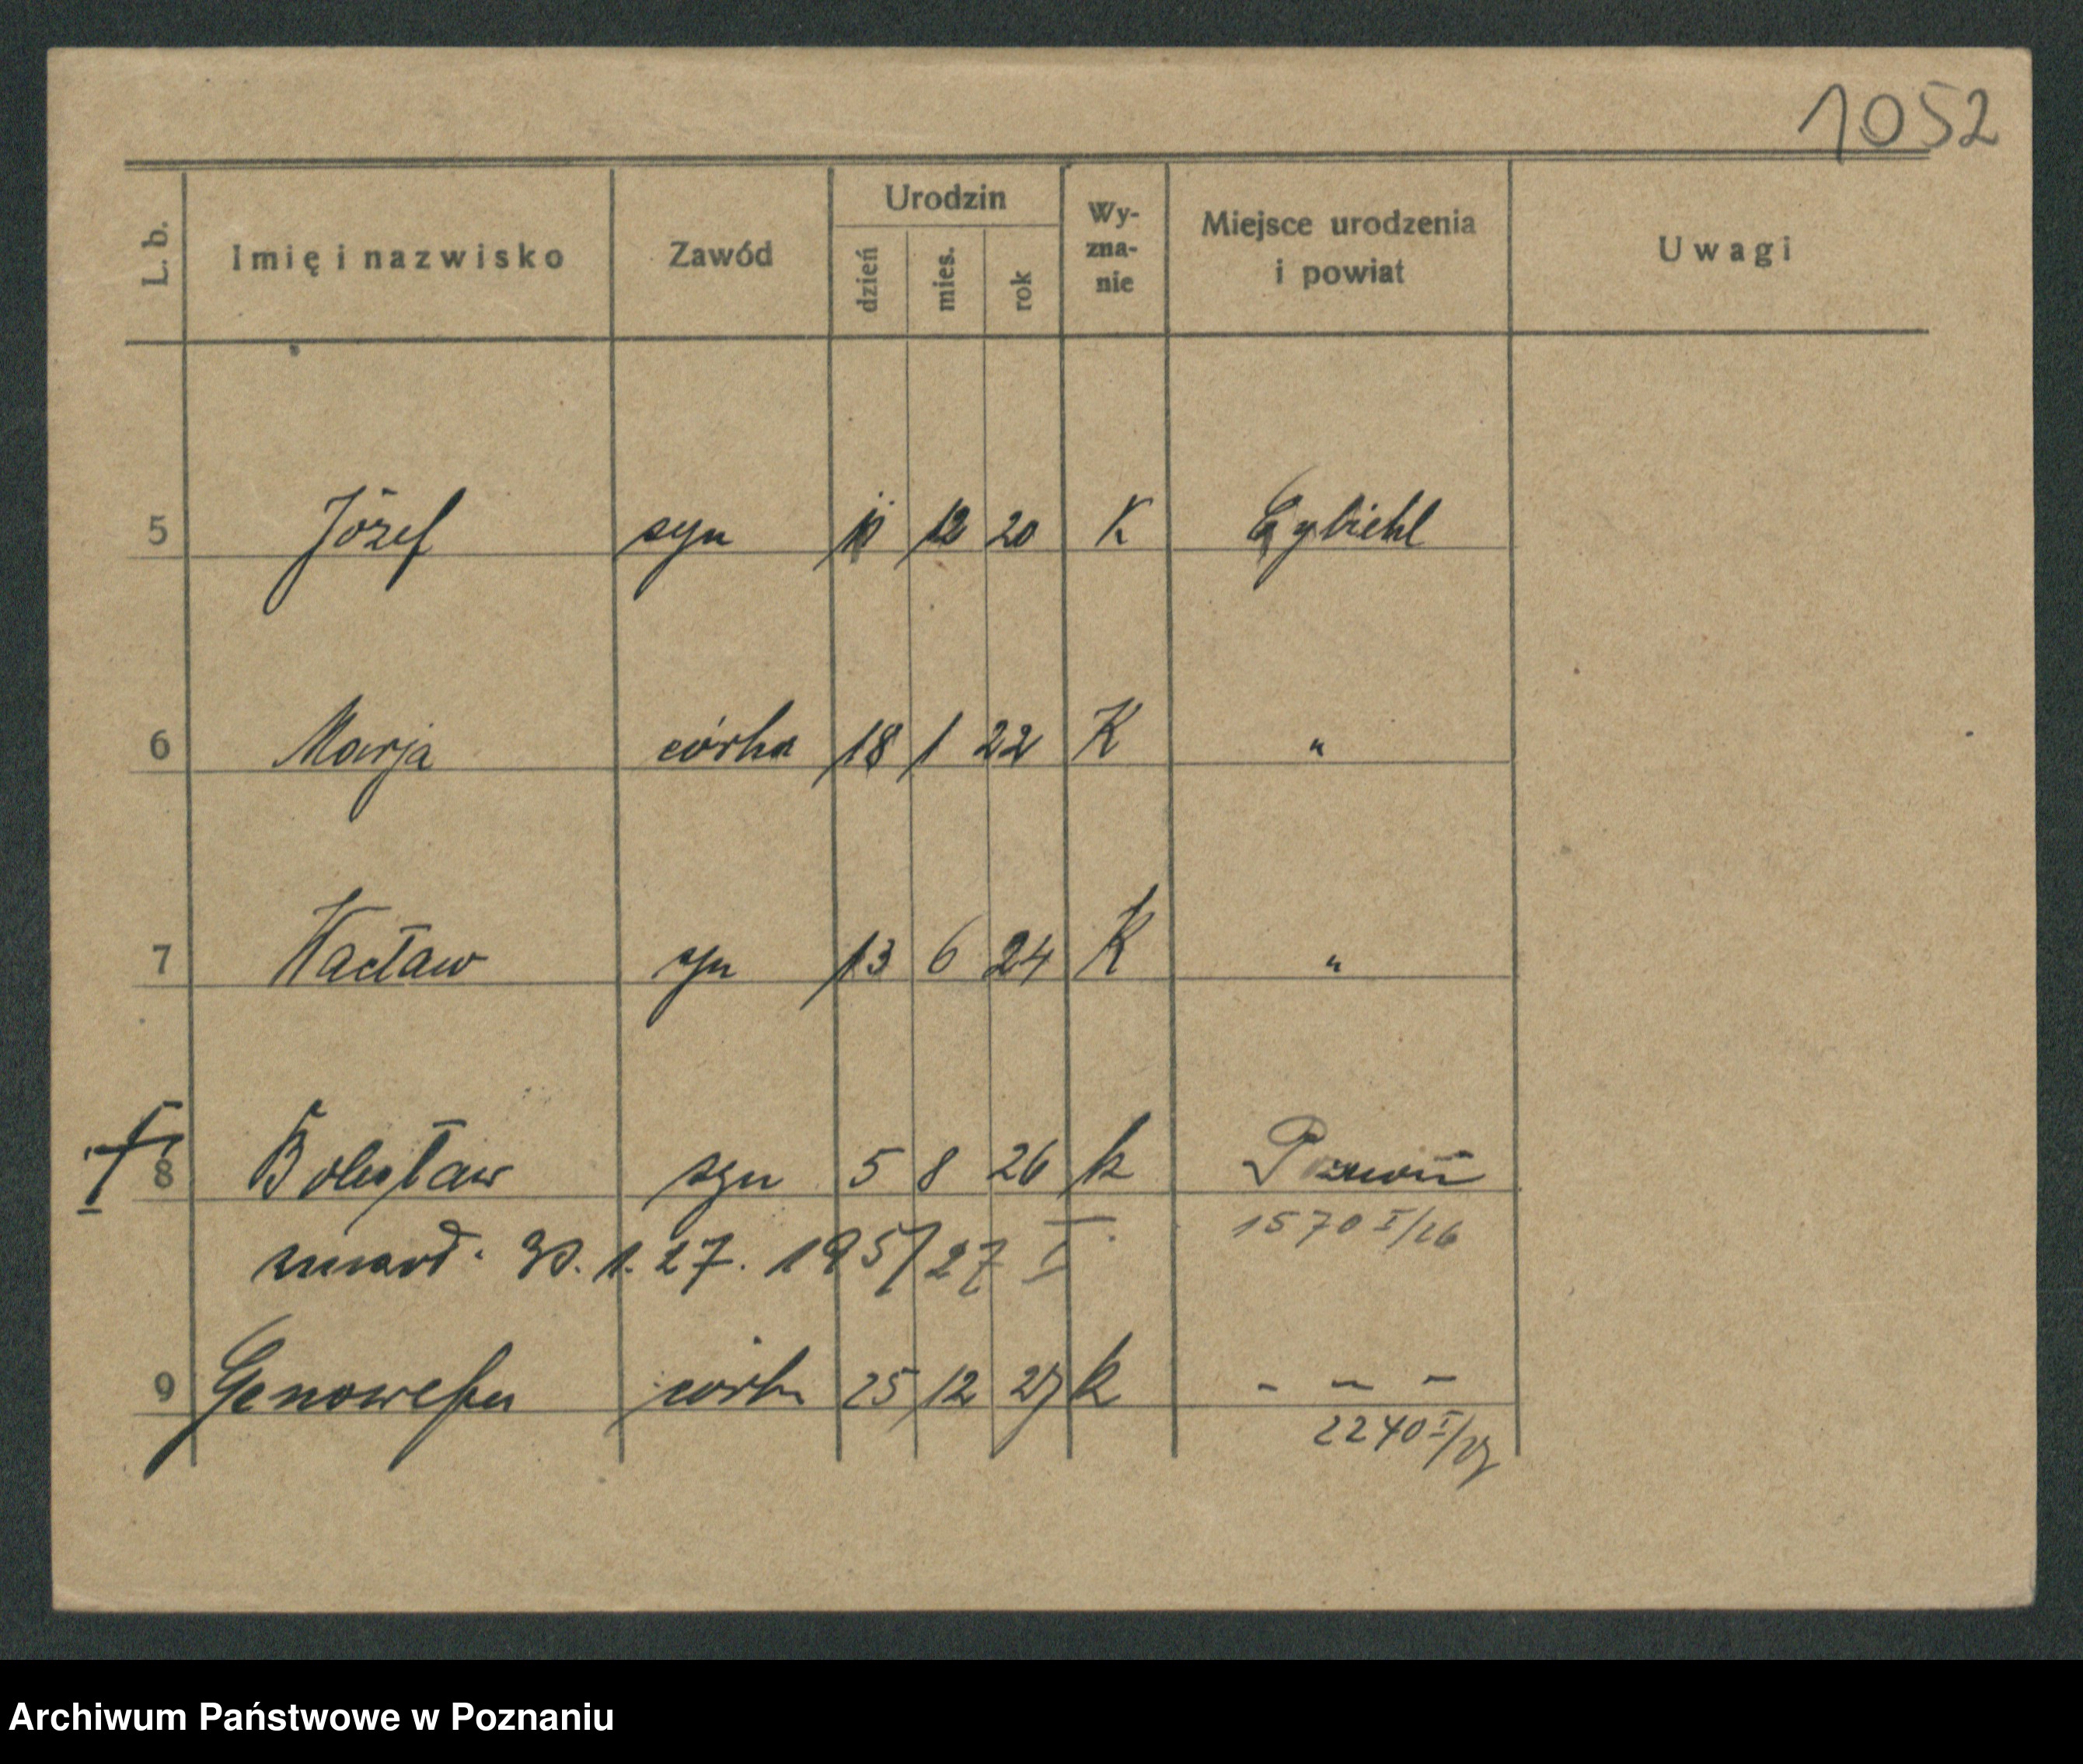 1052
L. b. Imię i nazwisko Zawód Urodzin dzień mies. rok Wy-zna-nie Miejsce urodzenia i powiat Uwagi
5 Józef syn 11 12 20 K
6 Marja córka 18 1 22 K "
7 Wacław syn 13 6 24 K "
8 Bolesław syn 5 8 26 k Poznań
1570 I/26
zmarł. 30. 1. 27. 195/27 I.
9 Genowefa córka 25 12 27 k - - -
2240 I/27
Archiwum Państwowe w Poznaniu